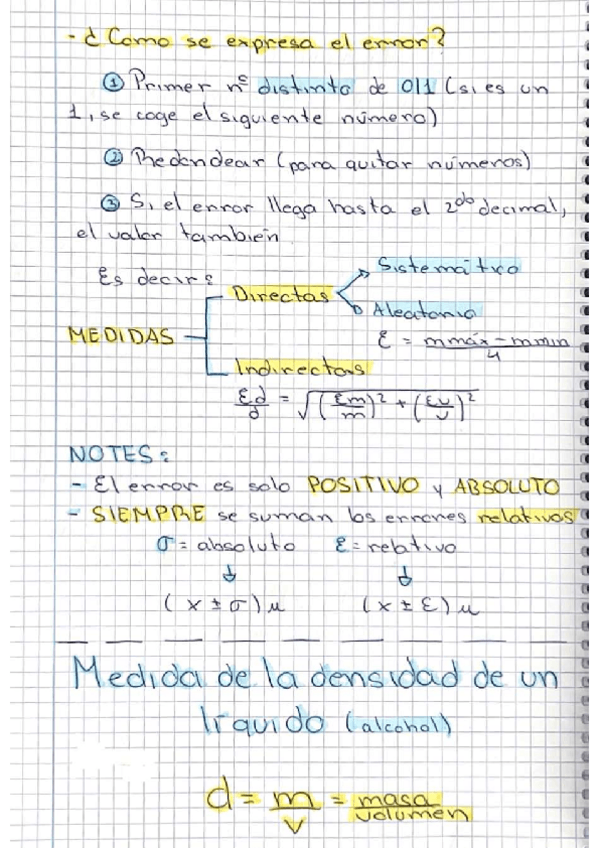 - ¿Como se expresa el error?
① Primer nº distinto de 0/1 (si es un
1, se coge el siguiente número)
② Redondear (para quitar números)
③ Si el error llega hasta el 2do decimal,
el valor también
Es decir:
Sistemático
Directas
Aleatorio
MEDIDAS
ε = mmáx - mmin / 4
Indirectas
εd/d = √((εm/m)² + (εv/v)²)
NOTES:
- El error es solo POSITIVO y ABSOLUTO
- SIEMPRE se suman los errores relativos
σ = absoluto ε = relativo
(x ± σ) u (x ± ε) u
Medida de la densidad de un
líquido (alcohol)
d = m/v = masa/volumen